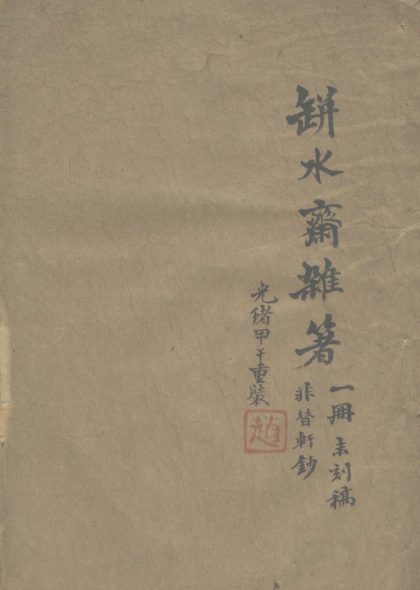 缾水齋雜箸
一冊 未刻稿
非昔軒鈔
光緒甲午重裝
趙